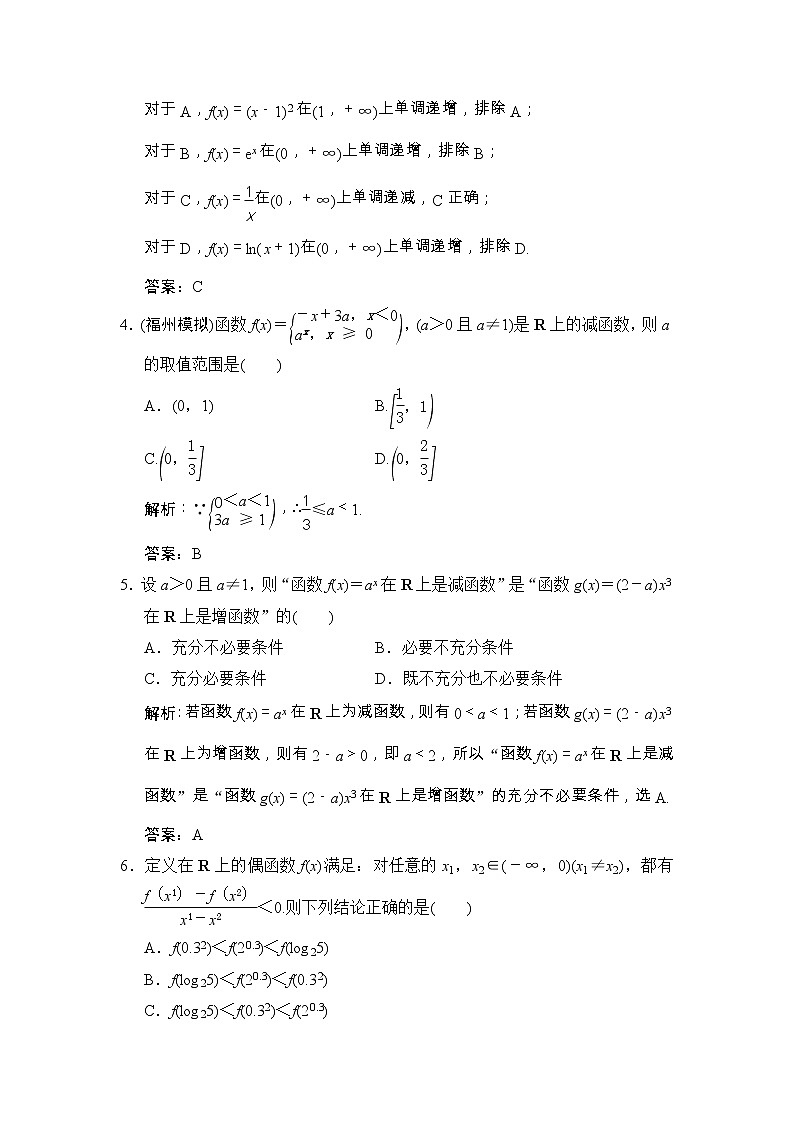 对于 A，f(x)＝(x－1)²在(1，＋∞)上单调递增，排除 A；
对于 B，f(x)＝eˣ在(0，＋∞)上单调递增，排除 B；
对于 C，f(x)＝1/x在(0，＋∞)上单调递减，C 正确；
对于 D，f(x)＝ln(x＋1)在(0，＋∞)上单调递增，排除 D.
答案：C
4．(福州模拟)函数 f(x)＝{－x＋3a，x＜0
aˣ，x ≥ 0，(a＞0 且 a≠1)是 R 上的减函数，则 a
的取值范围是(　　)
A．(0，1)　　B.[1/3，1)
C.(0，1/3]　　D.(0，2/3]
解析：∵{0＜a＜1
3a ≥ 1，∴1/3≤a＜1.
答案：B
5．设 a＞0 且 a≠1，则“函数 f(x)＝aˣ在 R 上是减函数”是“函数 g(x)＝(2－a)x³
在 R 上是增函数”的(　　)
A．充分不必要条件　　B．必要不充分条件
C．充分必要条件　　D．既不充分也不必要条件
解析：若函数 f(x)＝aˣ在 R 上为减函数，则有 0＜a＜1；若函数 g(x)＝(2－a)x³
在 R 上为增函数，则有 2－a＞0，即 a＜2，所以“函数 f(x)＝aˣ在 R 上是减
函数”是“函数 g(x)＝(2－a)x³在 R 上是增函数”的充分不必要条件，选 A.
答案：A
6．定义在 R 上的偶函数 f(x)满足：对任意的 x₁，x₂∈(－∞，0)(x₁≠x₂)，都有
f（x¹）－f（x²）/x¹－x²＜0.则下列结论正确的是(　　)
A．f(0.3²)＜f(2⁰·³)＜f(log₂5)
B．f(log₂5)＜f(2⁰·³)＜f(0.3²)
C．f(log₂5)＜f(0.3²)＜f(2⁰·³)